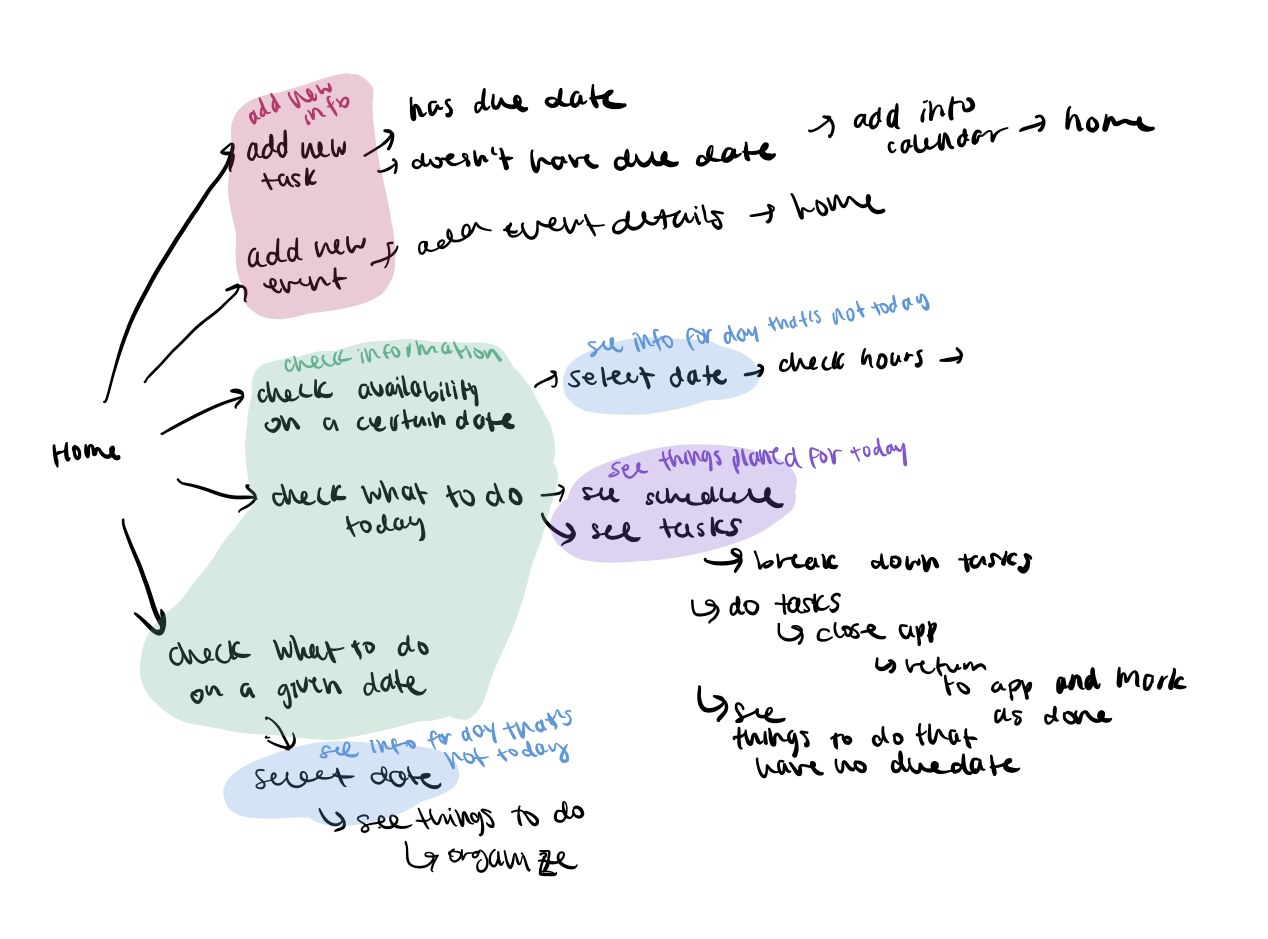 add new
info
add new
task
has due date
doesn't have due date
add info
calendar
home
add new
event
add event details
home
Home
check information
check availability
on a certain date
see info for day that's not today
select date
check hours
check what to do
today
see things planed for today
see schedule
see tasks
break down tasks
do tasks
close app
return
to app and mark
as done
see
things to do that
have no due date
check what to do
on a given date
see info for day that's
not today
select date
see things to do
organize